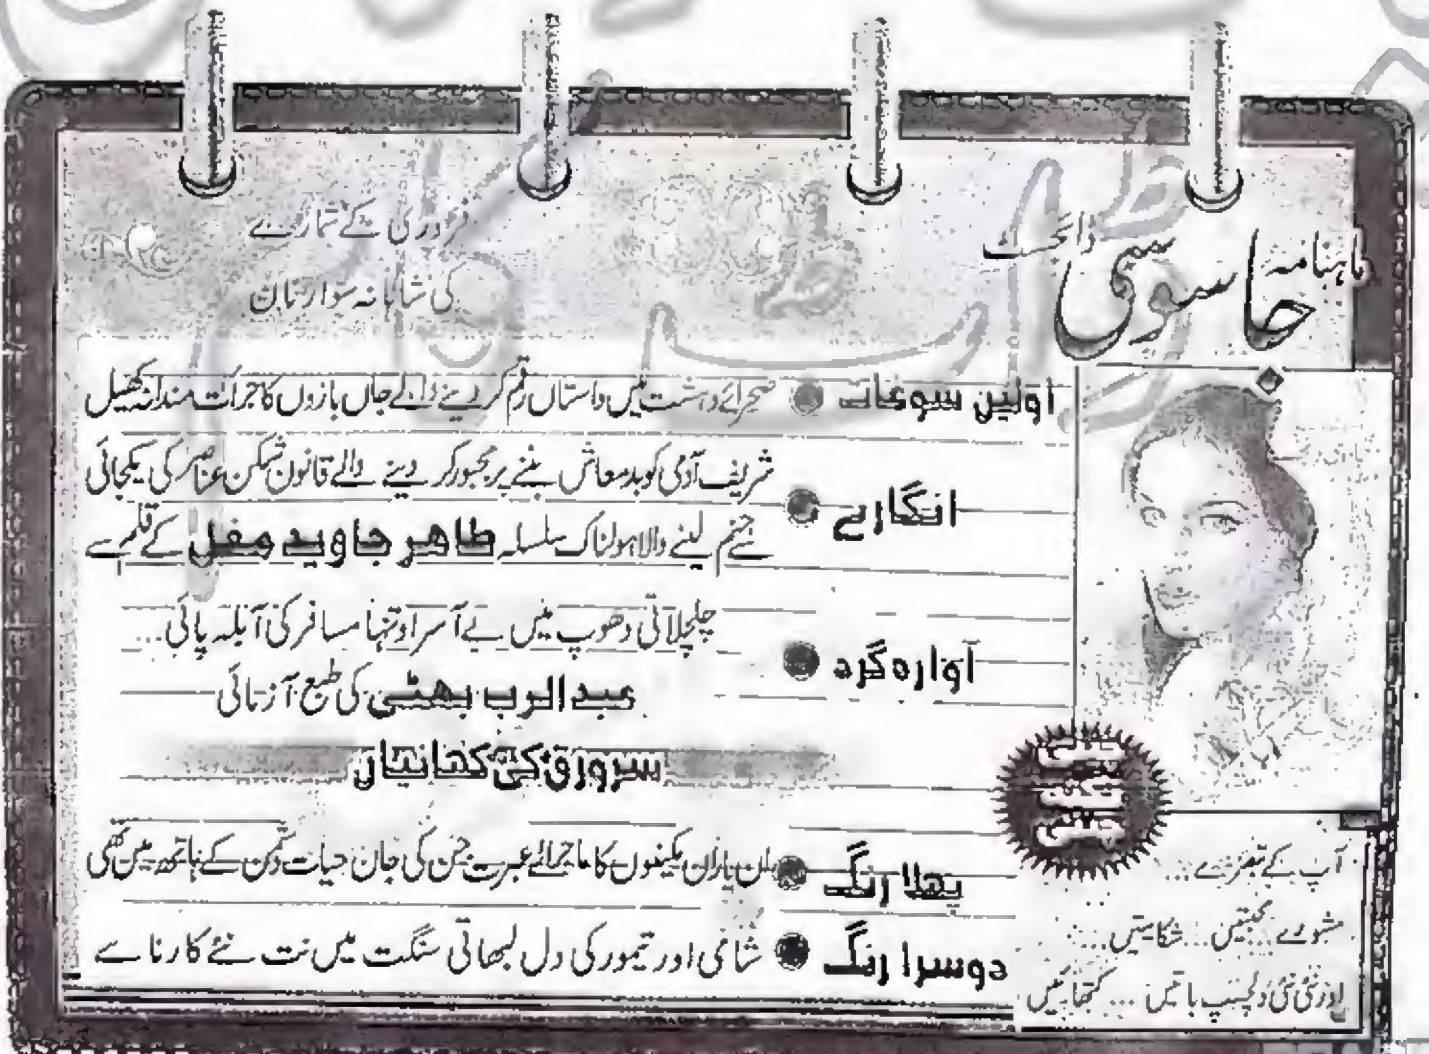 ماہنامہ جاسوسی ڈائجسٹ
فروری کے شمارے
کی شاہانہ سوار تہان
اولین سوغات ● صحرائے دہشت میں داستاں رقم کر دینے والے جاں بازوں کا جرأت مندانہ کھیل
انگارے ● شریف آدمی کو بدمعاش بننے پر مجبور کر دینے والے قانون شکن عناصر کی یکجائی
سے جنم لینے والا ہولناک سلسلہ طاہر جاوید مغل کے قلم سے
آوارہ گرد ● چلچلاتی دھوپ میں بے آسرا و تنہا مسافر کی آبلہ پائی...
عبدالرب بھٹی کی طبع آزمائی
سرورق کی کہانیاں
پہلا رنگ ● ان یاران کا ماجرائے عبرت جن کی جان حیات دشمن کے ہاتھ میں تھی
دوسرا رنگ ● شامی اور تیمور کی دل لبھاتی سنگت میں نت نئے کارنامے
آپ کے تبصرے...
مشورے... محبتیں... شکایتیں...
اور نئی نئی دلچسپ باتیں... کتھائیں